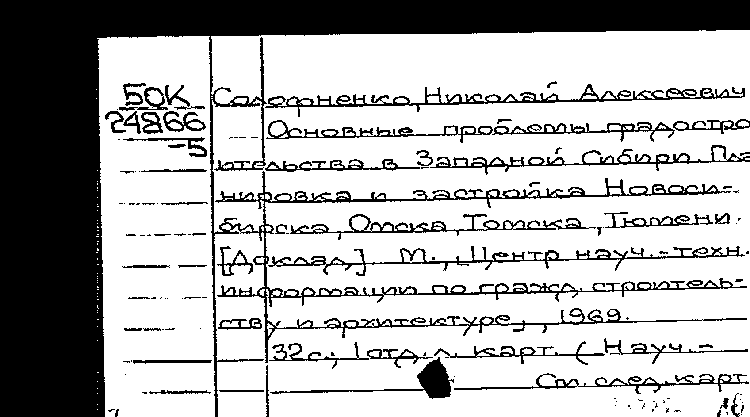 50К
24866
-5
Солофненко, Николай Алексеевич
Основные проблемы градостро
ительства в Западной Сибири. Пла
нировка и застройка Новоси-
бирска, Омска, Томска, Тюмени.
[Доклад] М., Центр науч.-техн.
информации по гражд. строитель-
ству и архитектуре, 1969.
32с.; 1 отд. л. карт. (Науч.-
См. след. карт